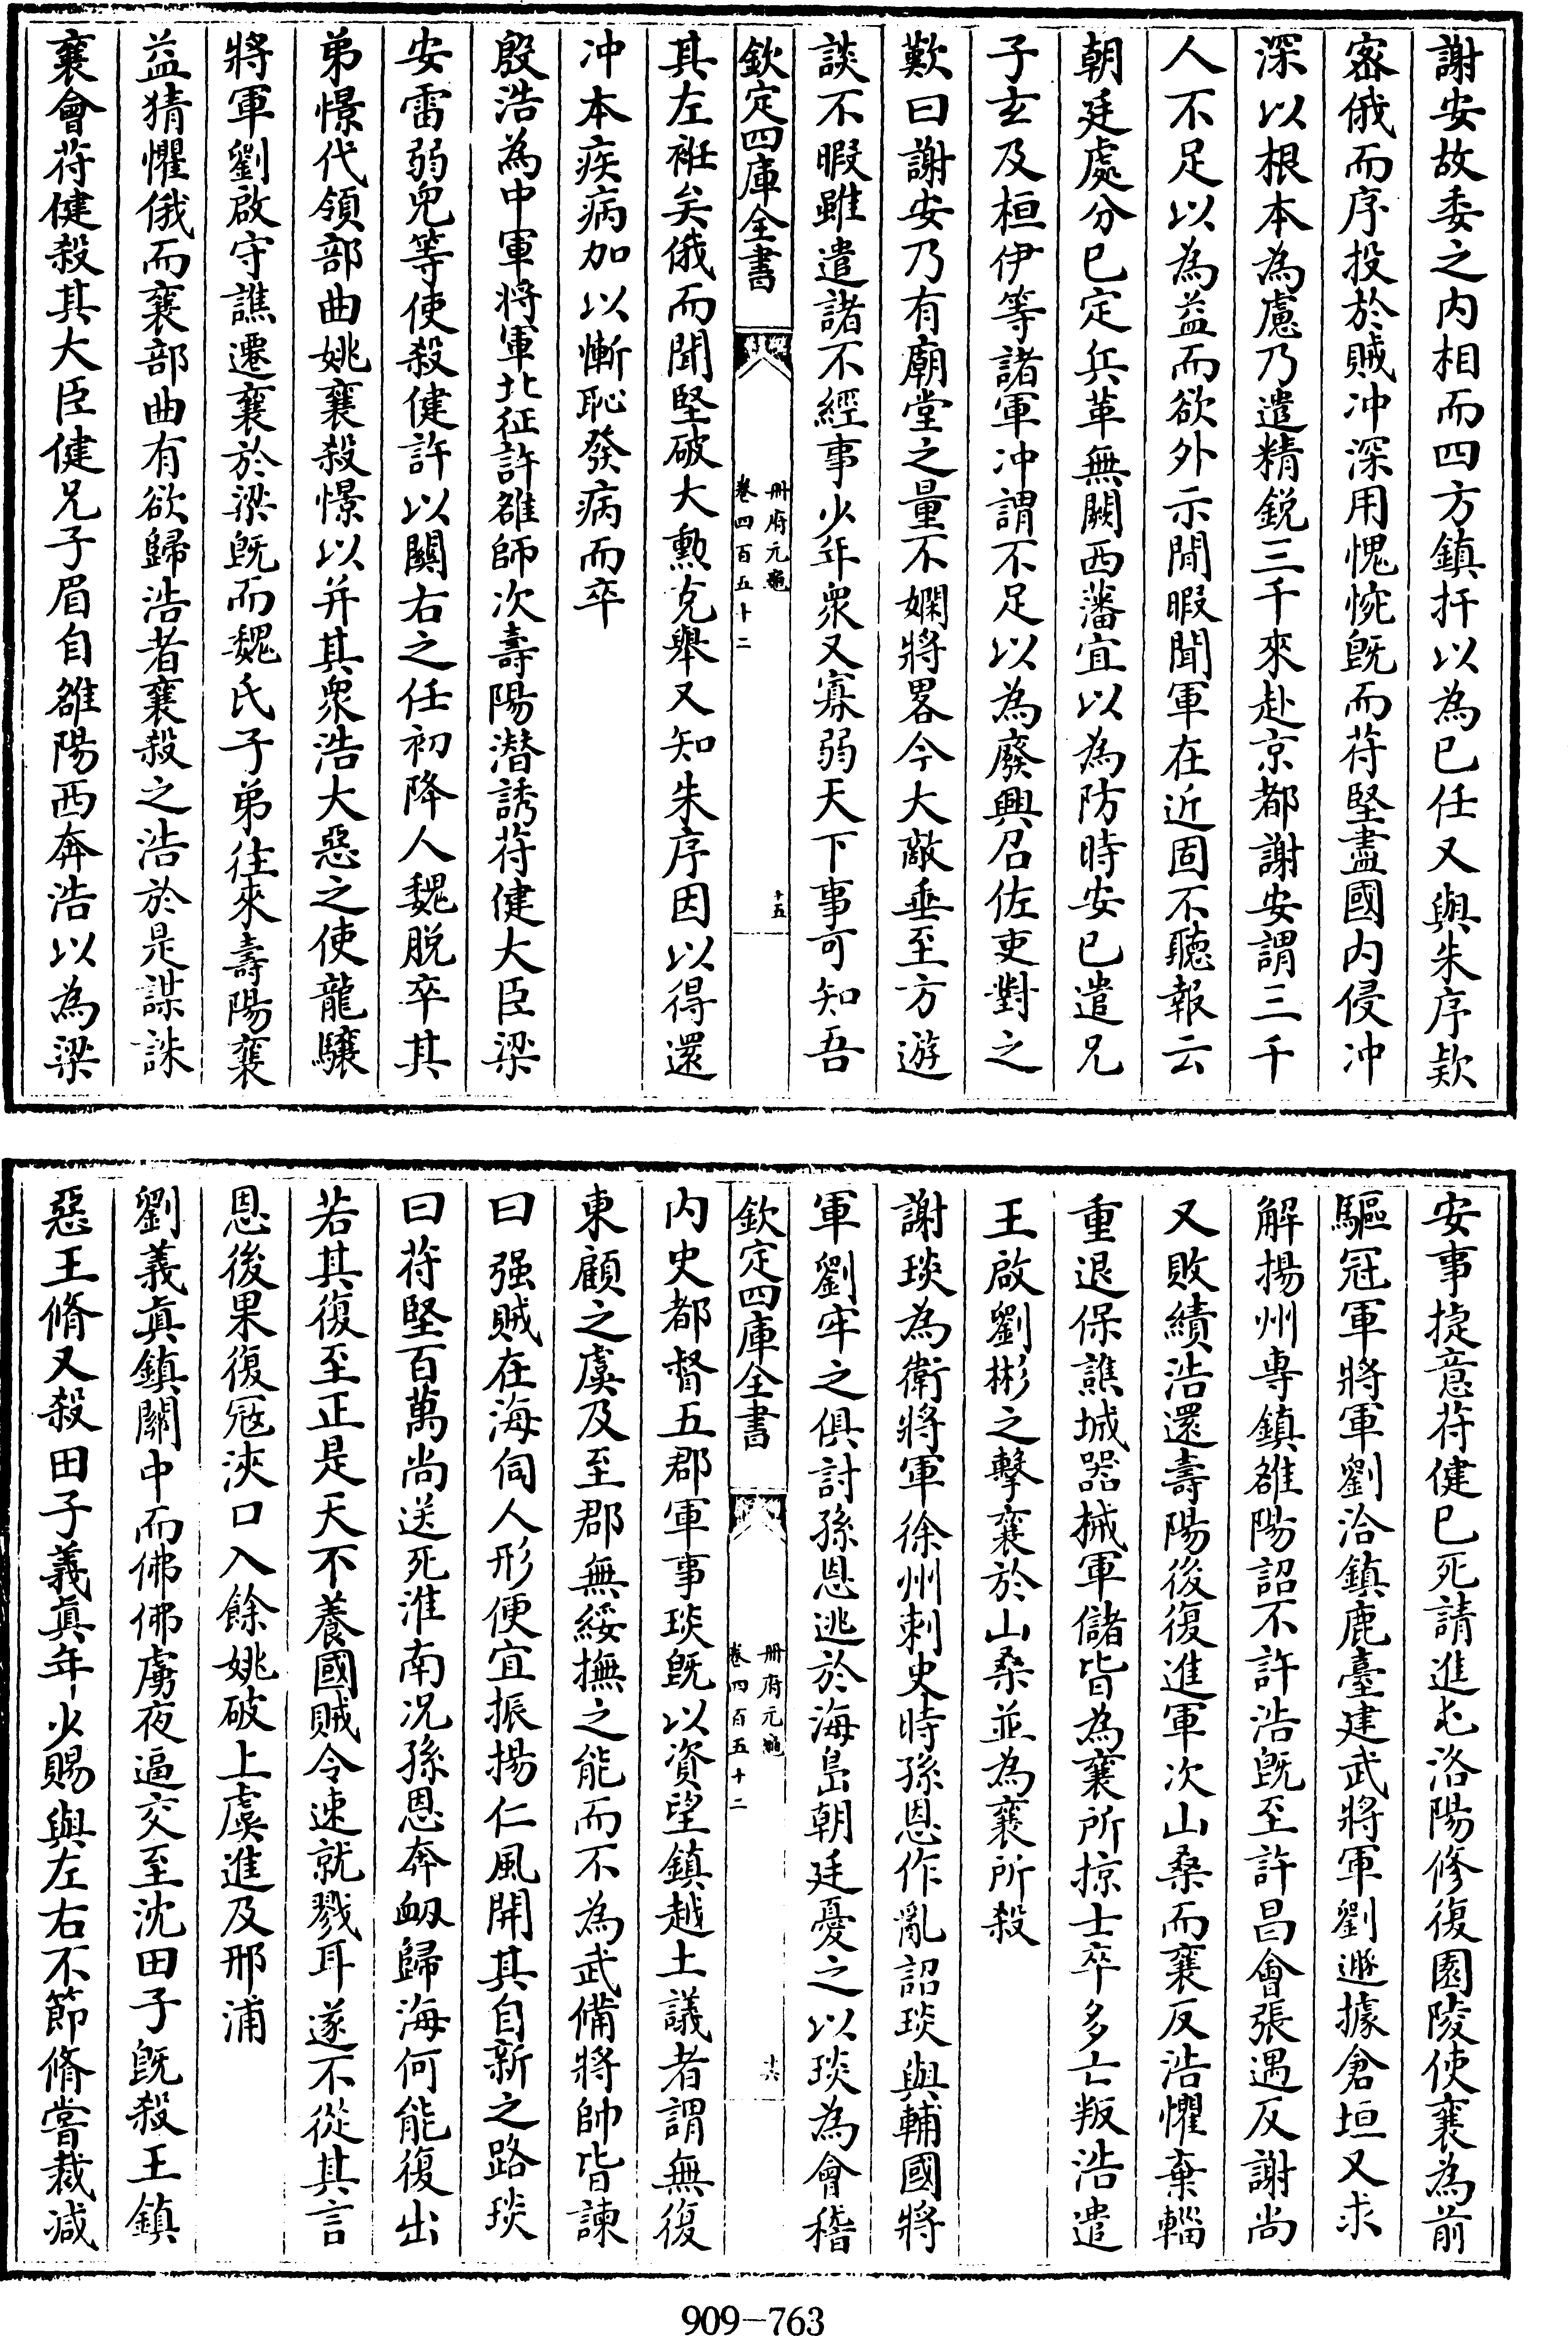 謝安故委之内相而四方鎮扞以為已任又與朱序欵
宻俄而序投於賊冲深用愧惋既而苻堅盡國内侵冲
深以根本為慮乃遣精鋭三千來赴京都謝安謂三千
人不足以為益而欲外示閒暇聞軍在近固不聽報云
朝廷處分已定兵革無闕西藩宜以為防時安已遣兄
子玄及桓伊等諸軍冲謂不足以為廢興召佐吏對之
歎曰謝安乃有廟堂之量不嫻將畧今大敵垂至方遊
談不暇雖遣諸不經事少年衆又寡弱天下事可知吾
欽定四庫全書
册府元龜
卷四百五十二
十五
其左袵矣俄而聞堅破大勲克舉又知朱序因以得還
冲本疾病加以慚恥發病而卒
殷浩為中軍将軍北征許雒師次壽陽潜誘苻健大臣梁
安雷弱兒等使殺健許以關右之任初降人魏脱卒其
弟憬代領部曲姚襄殺憬以并其衆浩大惡之使龍驤
將軍劉啟守譙遷襄於梁既而魏氏子弟往來壽陽襄
益猜懼俄而襄部曲有欲歸浩者襄殺之浩於是謀誅
襄會苻健殺其大臣健兄子眉自雒陽西奔浩以為梁
安事捷意苻健已死請進屯洛陽修復園陵使襄為前
驅冠軍將軍劉洽鎮鹿臺建武將軍劉遯據倉垣又求
解揚州專鎮雒陽詔不許浩既至許昌會張遇反謝尚
又敗績浩還壽陽後復進軍次山桑而襄反浩懼棄輜
重退保譙城器械軍儲皆為襄所掠士卒多亡叛浩遣
王啟劉彬之擊襄於山桑並為襄所殺
謝琰為衛將軍徐州刺史時孫恩作亂詔琰與輔國將
軍劉牢之俱討孫恩逃於海島朝廷憂之以琰為會稽
欽定四庫全書
册府元龜
卷四百五十二
十六
内史都督五郡軍事琰既以資望鎮越土議者謂無復
東顧之虞及至郡無綏撫之能而不為武備將帥皆諫
曰强賊在海伺人形便宜振揚仁風開其自新之路琰
曰苻堅百萬尚送死淮南况孫恩奔衂歸海何能復出
若其復至正是天不養國賊令速就戮耳遂不從其言
恩後果復冦浹口入餘姚破上虞進及邢浦
劉義眞鎮關中而佛佛虜夜逼交至沈田子既殺王鎮
惡王脩又殺田子義眞年少賜與左右不節脩嘗裁減
909-763